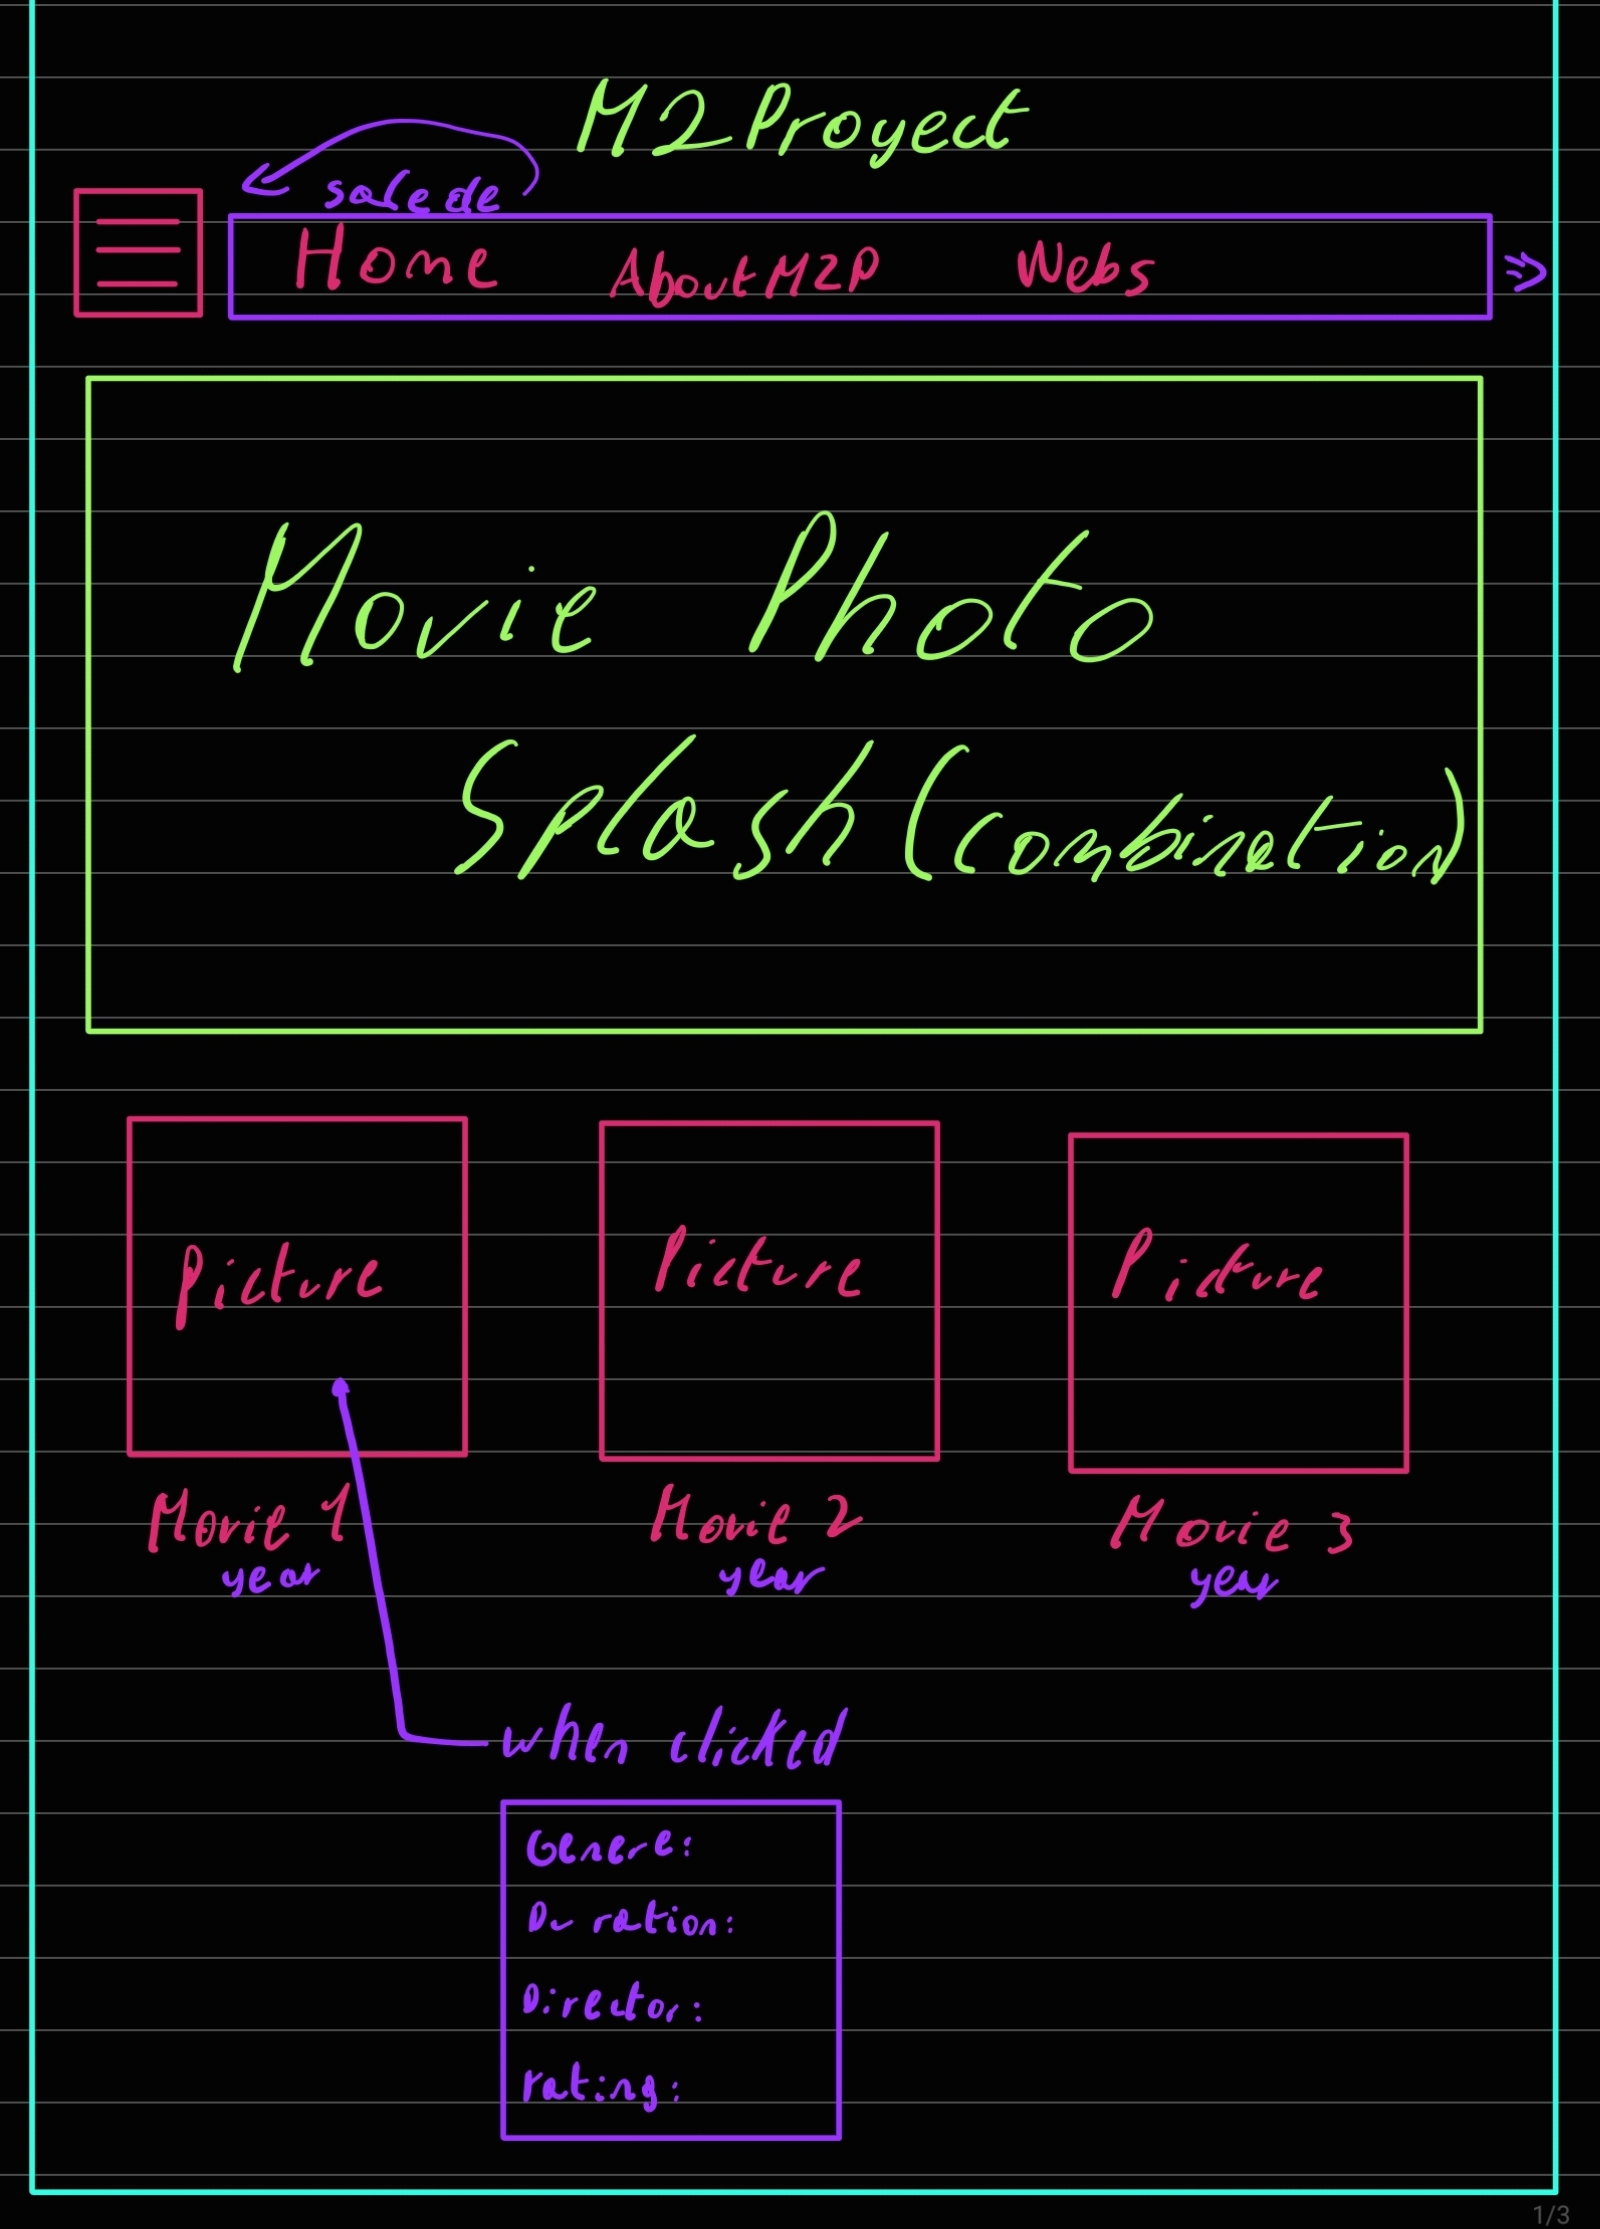 M2Proyect
sale de
Home AboutM2P Webs
Movie Photo
Splash (Combination)
Picture Picture Picture
Movie 1 Movie 2 Movie 3
year year year
when clicked
Genere:
Duration:
Director:
rating:
1/3